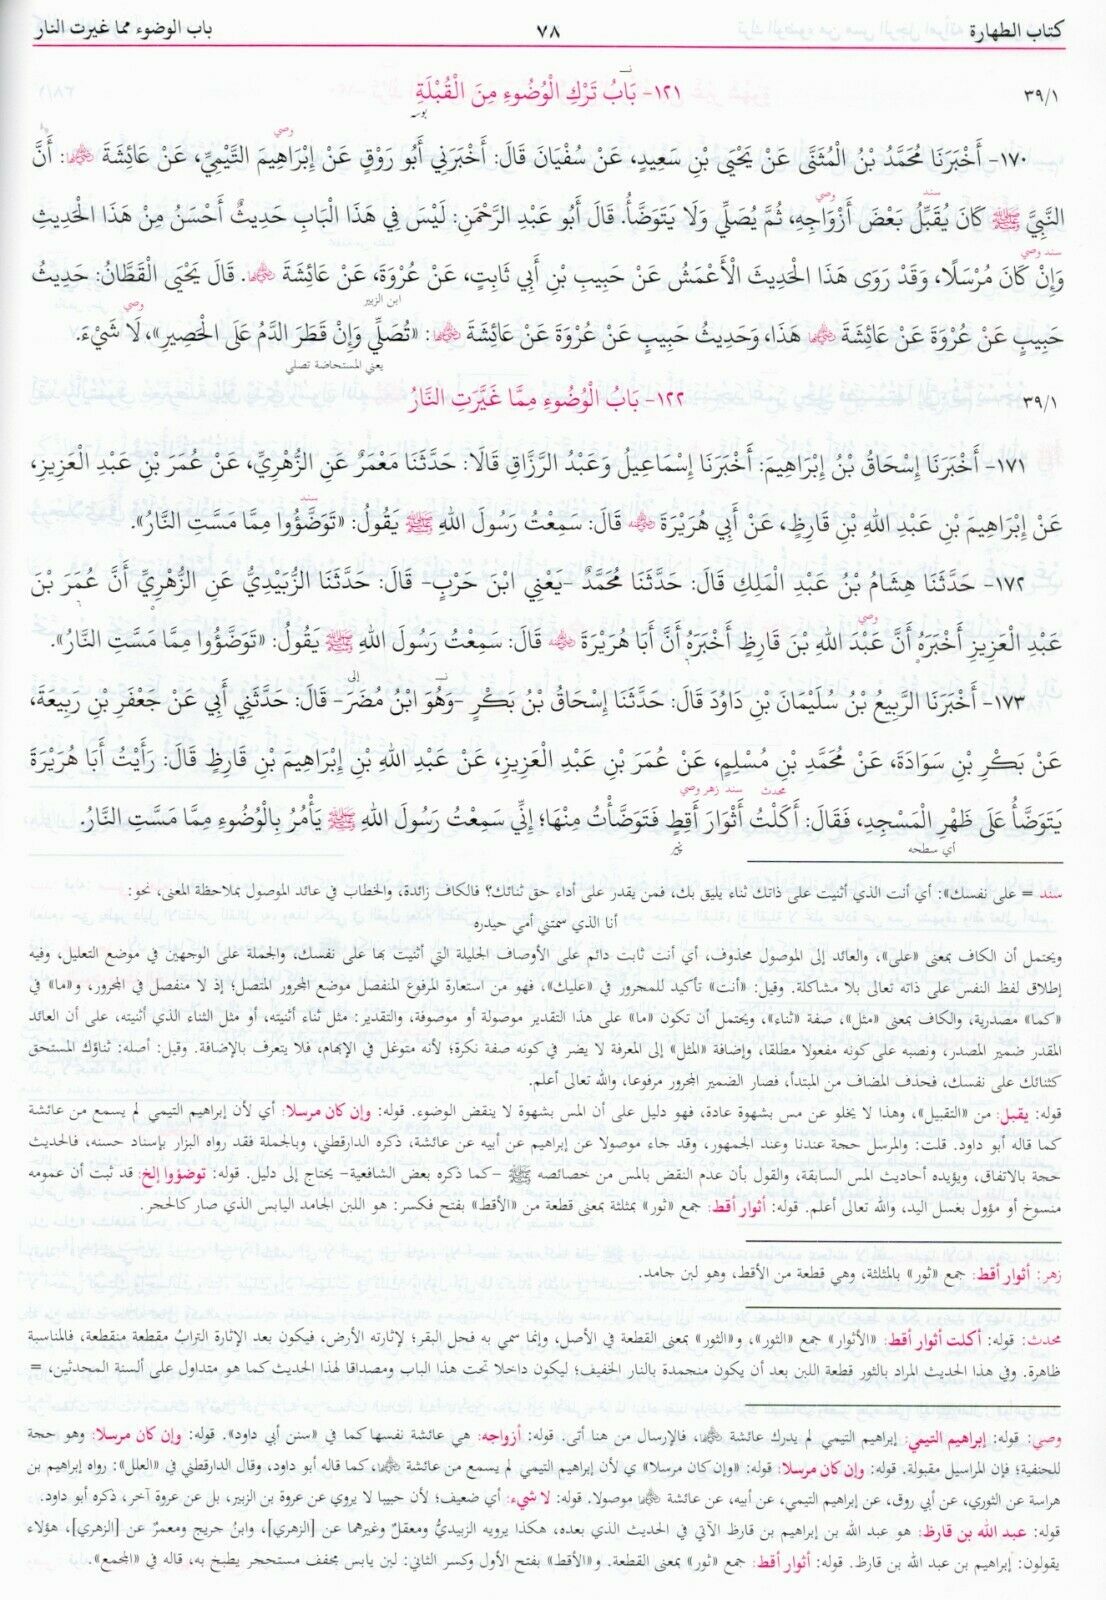 كتاب الطهارة ٧٨ باب الوضوء مما غيرت النار
٣٩/١ ١٢١- بَابُ تَرْكِ الْوُضُوءِ مِنَ الْقُبْلَةِ
بوسہ
وصي
١٧٠- أَخْبَرَنَا مُحَمَّدُ بْنُ الْمُثَنَّى عَنْ يَحْيَى بْنِ سَعِيدٍ، عَنْ سُفْيَانَ قَالَ: أَخْبَرَنِي أَبُو رَوْقٍ عَنْ إِبْرَاهِيمَ التَّيْمِيِّ، عَنْ عَائِشَةَ ﵂: أَنَّ
سند وصي
النَّبِيَّ ﷺ كَانَ يُقَبِّلُ بَعْضَ أَزْوَاجِهِ، ثُمَّ يُصَلِّي وَلَا يَتَوَضَّأُ. قَالَ أَبُو عَبْدِ الرَّحْمَنِ: لَيْسَ فِي هَذَا الْبَابِ حَدِيثٌ أَحْسَنُ مِنْ هَذَا الْحَدِيثِ
سند وصي
وَإِنْ كَانَ مُرْسَلًا، وَقَدْ رَوَى هَذَا الْحَدِيثَ الْأَعْمَشُ عَنْ حَبِيبِ بْنِ أَبِي ثَابِتٍ، عَنْ عُرْوَةَ، عَنْ عَائِشَةَ ﵂. قَالَ يَحْيَى الْقَطَّانُ: حَدِيثُ
ابن الزبير
وصي
حَبِيبٍ عَنْ عُرْوَةَ عَنْ عَائِشَةَ ﵂ هَذَا، وَحَدِيثُ حَبِيبٍ عَنْ عُرْوَةَ عَنْ عَائِشَةَ ﵂: «تُصَلِّي وَإِنْ قَطَرَ الدَّمُ عَلَى الْحَصِيرِ»، لَا شَيْءَ.
يعني المستحاضة تصلي
٣٩/١ ١٢٢- بَابُ الْوُضُوءِ مِمَّا غَيَّرَتِ النَّارُ
١٧١- أَخْبَرَنَا إِسْحَاقُ بْنُ إِبْرَاهِيمَ: أَخْبَرَنَا إِسْمَاعِيلُ وَعَبْدُ الرَّزَّاقِ قَالَا: حَدَّثَنَا مَعْمَرٌ عَنِ الزُّهْرِيِّ، عَنْ عُمَرَ بْنِ عَبْدِ الْعَزِيزِ،
سند
عَنْ إِبْرَاهِيمَ بْنِ عَبْدِ اللهِ بْنِ قَارِظٍ، عَنْ أَبِي هُرَيْرَةَ ﵁ قَالَ: سَمِعْتُ رَسُولَ اللهِ ﷺ يَقُولُ: «تَوَضَّؤُوا مِمَّا مَسَّتِ النَّارُ».
١٧٢- حَدَّثَنَا هِشَامُ بْنُ عَبْدِ الْمَلِكِ قَالَ: حَدَّثَنَا مُحَمَّدٌ -يَعْنِي ابْنَ حَرْبٍ- قَالَ: حَدَّثَنَا الزُّبَيْدِيُّ عَنِ الزُّهْرِيِّ أَنَّ عُمَرَ بْنَ
وصي
عَبْدِ الْعَزِيزِ أَخْبَرَهُ أَنَّ عَبْدَ اللهِ بْنَ قَارِظٍ أَخْبَرَهُ أَنَّ أَبَا هُرَيْرَةَ ﵁ قَالَ: سَمِعْتُ رَسُولَ اللهِ ﷺ يَقُولُ: «تَوَضَّؤُوا مِمَّا مَسَّتِ النَّارُ».
١٧٣- أَخْبَرَنَا الرَّبِيعُ بْنُ سُلَيْمَانَ بْنِ دَاوُدَ قَالَ: حَدَّثَنَا إِسْحَاقُ بْنُ بَكْرٍ -وَهُوَ ابْنُ مُضَرَ- قَالَ: حَدَّثَنِي أَبِي عَنْ جَعْفَرِ بْنِ رَبِيعَةَ،
عَنْ بَكْرِ بْنِ سَوَادَةَ، عَنْ مُحَمَّدِ بْنِ مُسْلِمٍ، عَنْ عُمَرَ بْنِ عَبْدِ الْعَزِيزِ، عَنْ عَبْدِ اللهِ بْنِ إِبْرَاهِيمَ بْنِ قَارِظٍ قَالَ: رَأَيْتُ أَبَا هُرَيْرَةَ
محدث سند زهر وصي
يَتَوَضَّأُ عَلَى ظَهْرِ الْمَسْجِدِ، فَقَالَ: أَكَلْتُ أَثْوَارَ أَقِطٍ فَتَوَضَّأْتُ مِنْهَا؛ إِنِّي سَمِعْتُ رَسُولَ اللهِ ﷺ يَأْمُرُ بِالْوُضُوءِ مِمَّا مَسَّتِ النَّارُ.
أي سطحه پنیر
سند = على نفسك»: أي أنت الذي أثنيت على ذاتك ثناء يليق بك، فمن يقدر على أداء حق ثنائك؟ فالكاف زائدة، والخطاب في عائد الموصول بملاحظة المعنى، نحو:
أنا الذي سمتني أمي حيدره
ويحتمل أن الكاف بمعنى «على»، والعائد إلى الموصول محذوف، أي أنت ثابت دائم على الأوصاف الجليلة التي أثنيت بها على نفسك، والجملة على الوجهين في موضع التعليل، وفيه
إطلاق لفظ النفس على ذاته تعالى بلا مشاكلة. وقيل: «أنت» تأكيد للمجرور في «عليك»، فهو من استعارة المرفوع المنفصل موضع المجرور المتصل؛ إذ لا منفصل في المجرور، و«ما» في
«كما» مصدرية، والكاف بمعنى «مثل»، صفة «ثناء»، ويحتمل أن تكون «ما» على هذا التقدير موصولة أو موصوفة، والتقدير: مثل ثناء أثنيته، أو مثل الثناء الذي أثنيته، على أن العائد
المقدر ضمير المصدر، ونصبه على كونه مفعولا مطلقا، وإضافة «المثل» إلى المعرفة لا يضر في كونه صفة نكرة؛ لأنه متوغل في الإبهام، فلا يتعرف بالإضافة. وقيل: أصله: ثناؤك المستحق
كثنائك على نفسك، فحذف المضاف من المبتدأ، فصار الضمير المجرور مرفوعا، والله تعالى أعلم.
قوله: يقبل: من «التقبيل»، وهذا لا يخلو عن مس بشهوة عادة، فهو دليل على أن المس بشهوة لا ينقض الوضوء. قوله: وإن كان مرسلا: أي لأن إبراهيم التيمي لم يسمع من عائشة
كما قاله أبو داود. قلت: والمرسل حجة عندنا وعند الجمهور، وقد جاء موصولا عن إبراهيم عن أبيه عن عائشة، ذكره الدارقطني، وبالجملة فقد رواه البزار بإسناد حسنه، فالحديث
حجة بالاتفاق، ويؤيده أحاديث المس السابقة، والقول بأن عدم النقض بالمس من خصائصه ﷺ -كما ذكره بعض الشافعية- يحتاج إلى دليل. قوله: توضؤوا إلخ: قد ثبت أن عمومه
منسوخ أو مؤول بغسل اليد، والله تعالى أعلم. قوله: أثوار أقط: جمع «ثور» بمثلثة بمعنى قطعة من «الأقط» بفتح فكسر: هو اللبن الجامد اليابس الذي صار كالحجر.
زهر: أثوار أقط: جمع «ثور» بالمثلثة، وهي قطعة من الأقط، وهو لبن جامد.
محدث: قوله: أكلت أثوار أقط: «الأثوار» جمع «الثور»، و«الثور» بمعنى القطعة في الأصل، وإنما سمي به فحل البقر؛ لإثارته الأرض، فيكون بعد الإثارة الترابُ مقطعة منقطعة، فالمناسبة
ظاهرة. وفي هذا الحديث المراد بالثور قطعة اللبن بعد أن يكون منجمدة بالنار الخفيف؛ ليكون داخلا تحت هذا الباب ومصداقا لهذا الحديث كما هو متداول على ألسنة المحدثين، =
وصي: قوله: إبراهيم التيمي: إبراهيم التيمي لم يدرك عائشة ﵂، فالإرسال من هنا أتى. قوله: أزواجه: هي عائشة نفسها كما في «سنن أبي داود». قوله: وإن كان مرسلا: وهو حجة
للحنفية؛ فإن المراسيل مقبولة. قوله: وإن كان مرسلا: قوله: «وإن كان مرسلا» ي لأن إبراهيم التيمي لم يسمع من عائشة ﵂، كما قاله أبو داود، وقال الدارقطني في «العلل»: رواه إبراهيم بن
هراسة عن الثوري، عن أبي روق، عن إبراهيم التيمي، عن أبيه، عن عائشة ﵂ موصولا. قوله: لا شيء: أي ضعيف؛ لأن حبيبا لا يروي عن عروة بن الزبير، بل عن عروة آخر، ذكره أبو داود.
قوله: عبد الله بن قارظ: هو عبد الله بن إبراهيم بن قارظ الآتي في الحديث الذي بعده، هكذا يرويه الزبيديُّ ومعقلٌ وغيرهما عن [الزهري]، وابنُ جريج ومعمرٌ عن [الزهري]، هؤلاء
يقولون: إبراهيم بن عبد الله بن قارظ. قوله: أثوار أقط: جمع «ثور» بمعنى القطعة. و«الأقط» بفتح الأول وكسر الثاني: لبن يابس مجفف مستحجر يطبخ به، قاله في «المجمع».